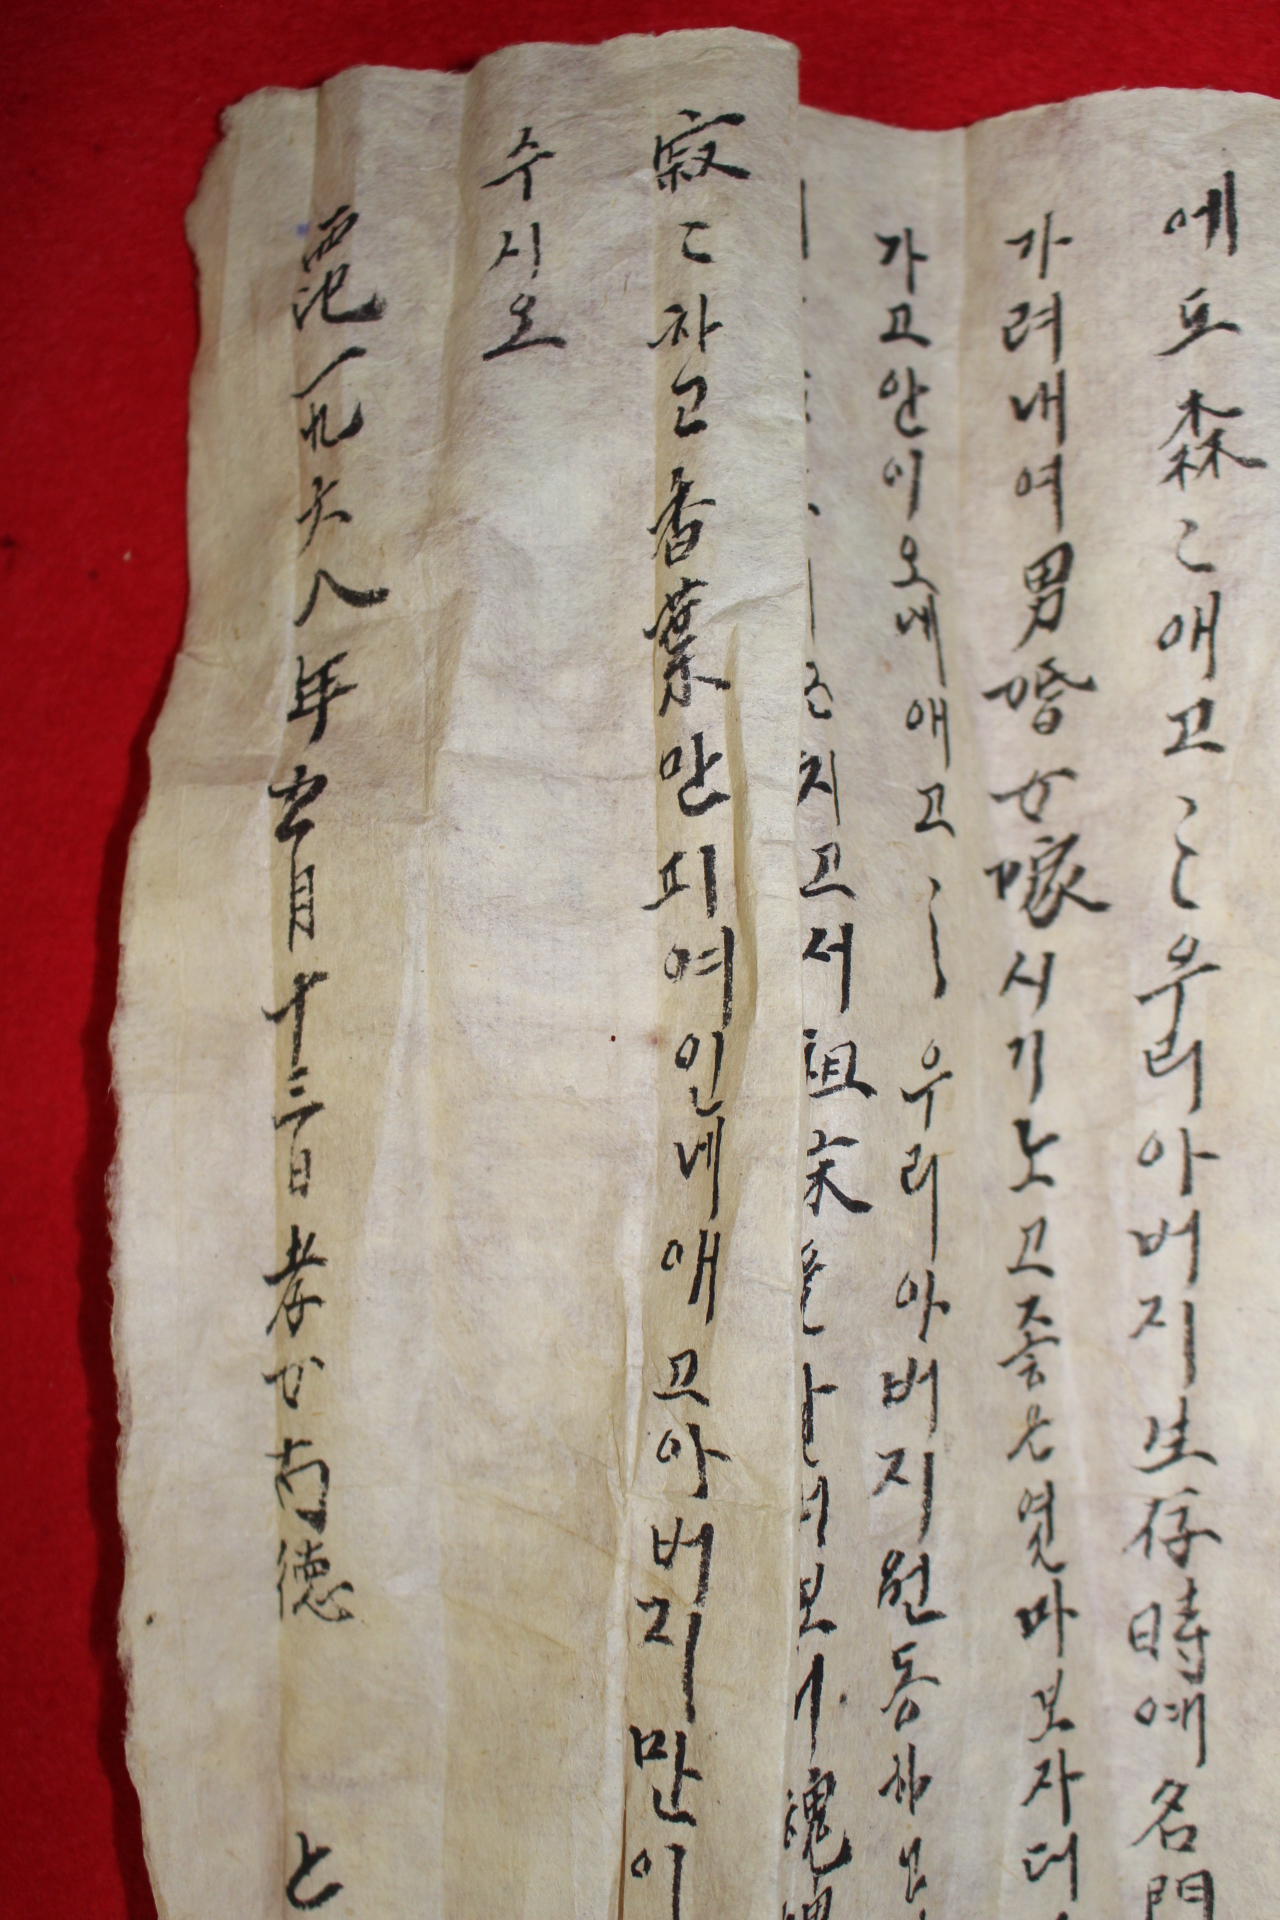 에도森〻애고〻〻우리아버지生存時예名門
가려내여男婚女嫁시기노고죻은엿마보자더
가고안이오네애고〻〻우리아버지원동
지고서祖宗을 보 魂
寂〻자고香葉만피여인네애고아버지만이
수시오
西紀一九六八年五月十三日孝女南德